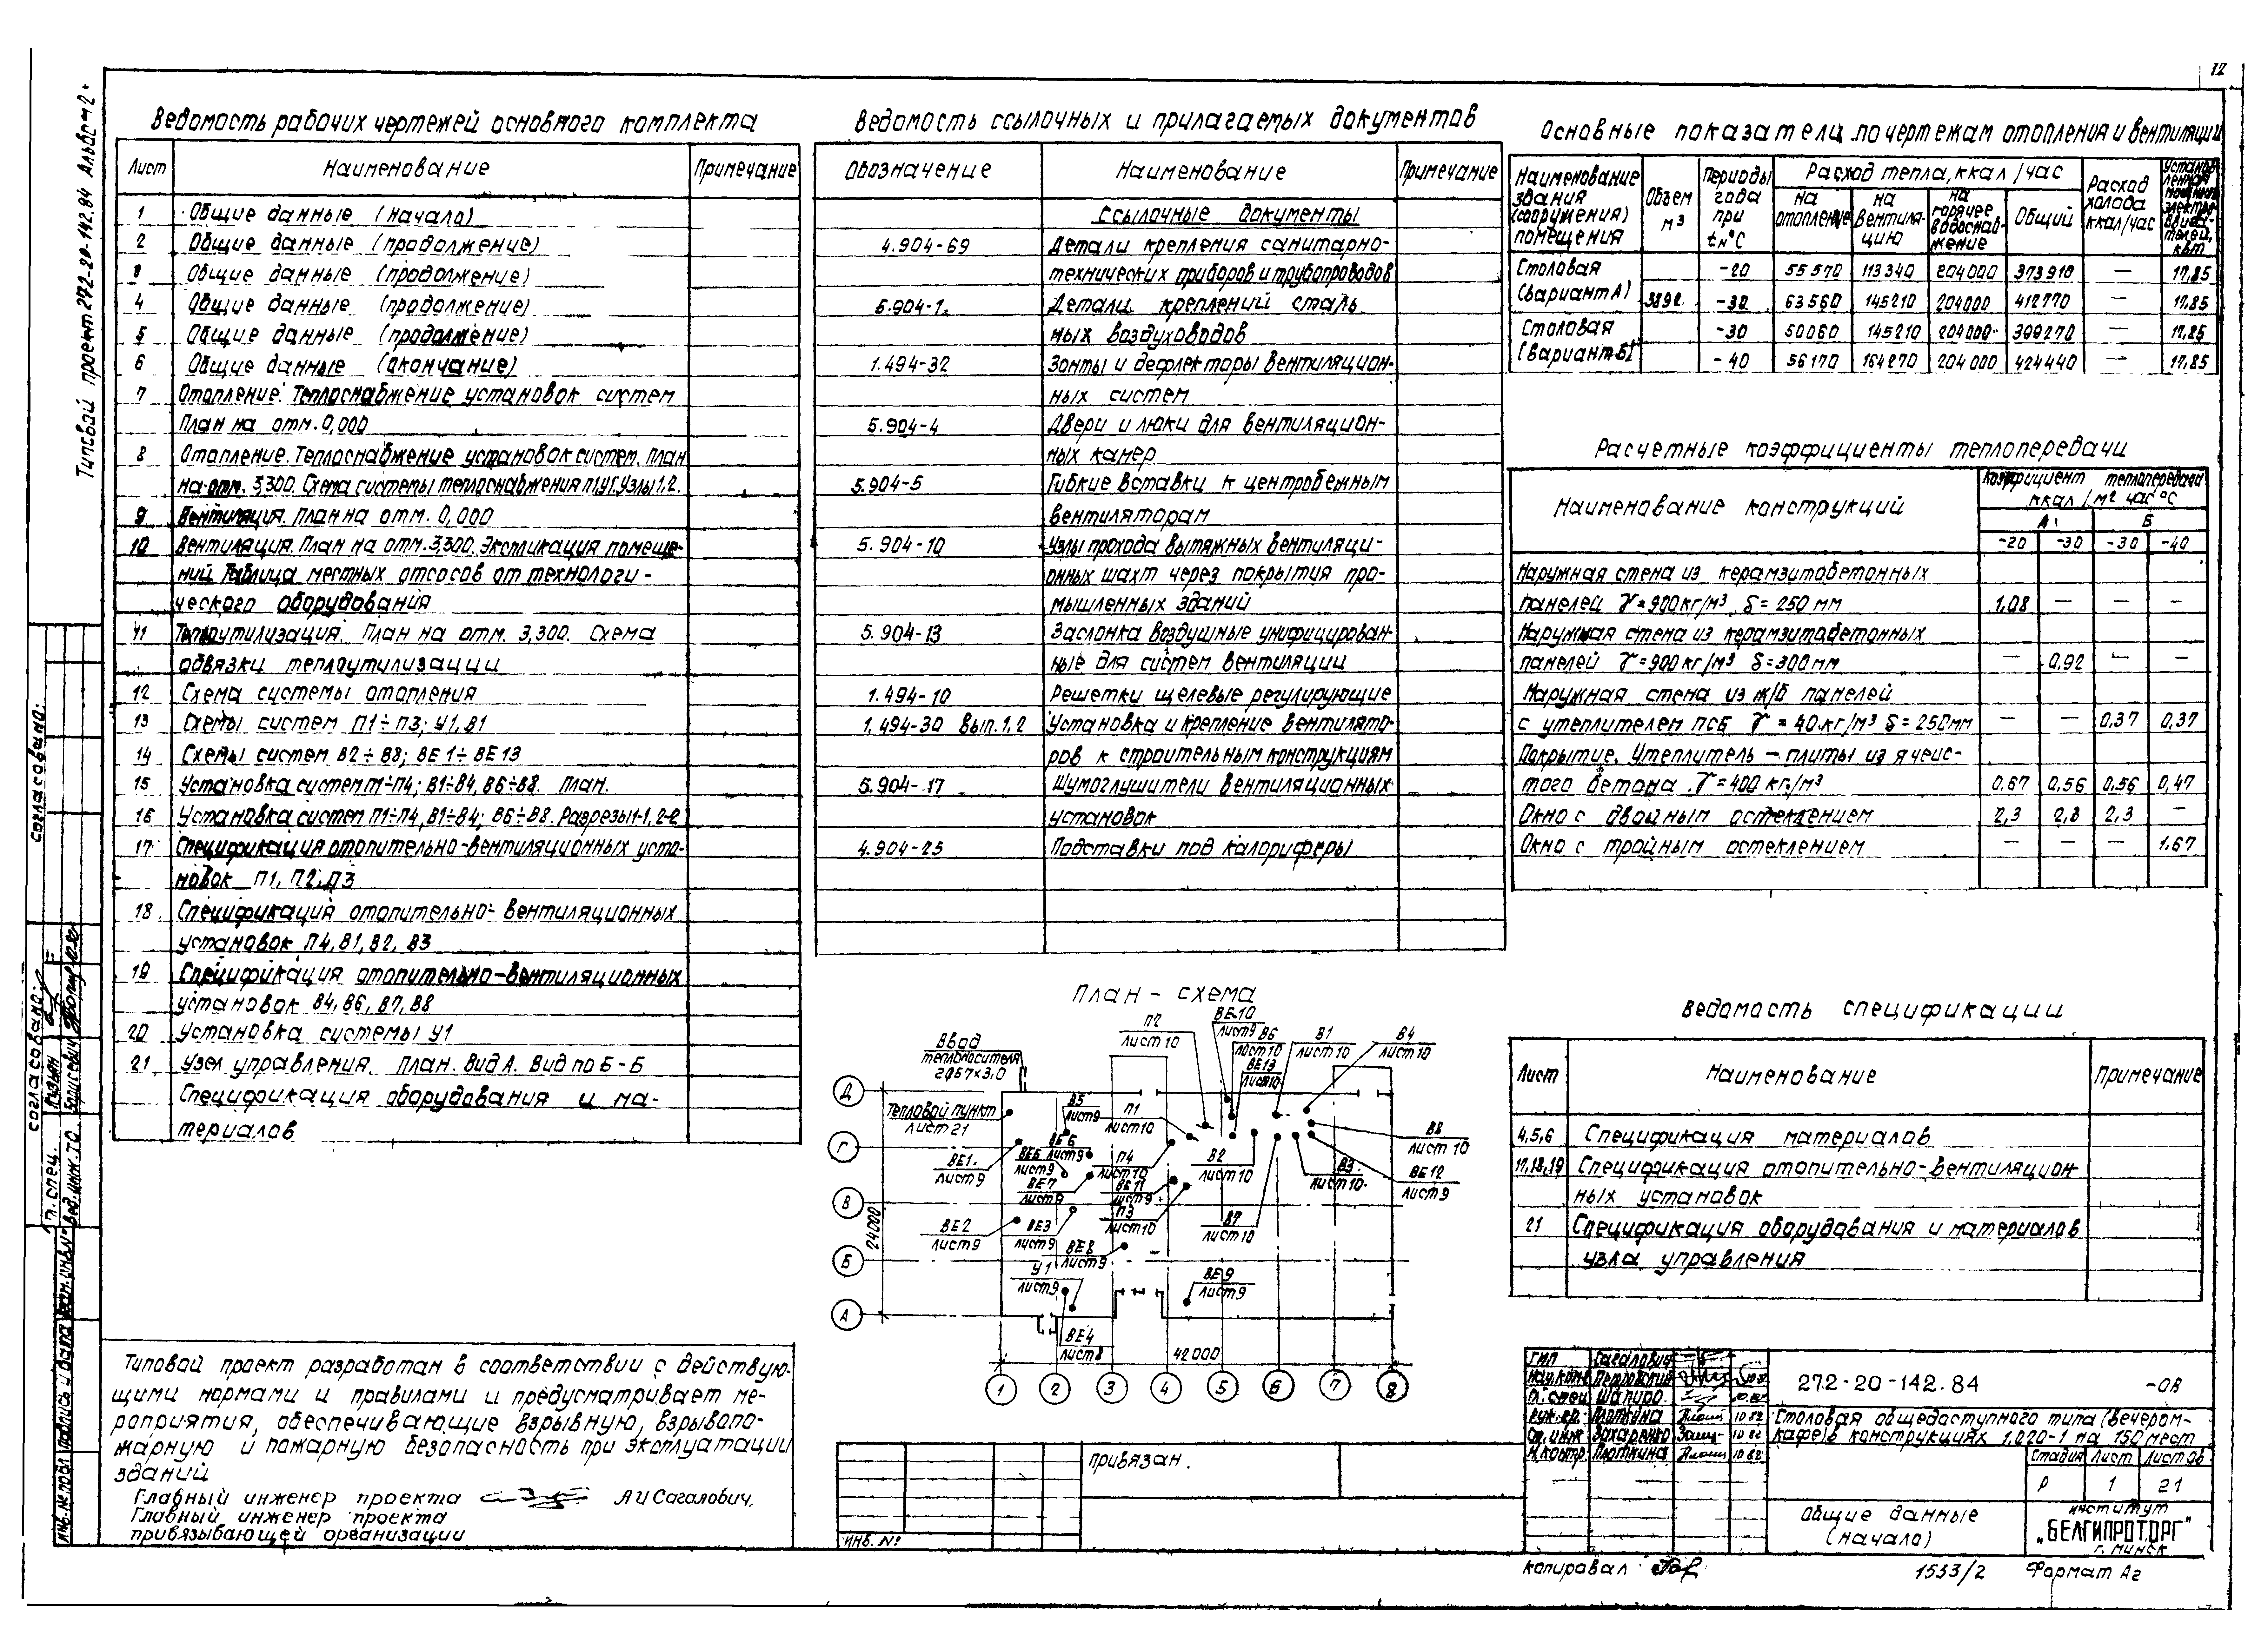 12
Типовой проект 272-20-142.84 Альбом 2
Ведомость рабочих чертежей основного комплекта
Лист Наименование Примечание
1 Общие данные (начало)
2 Общие данные (продолжение)
3 Общие данные (продолжение)
4 Общие данные (продолжение)
5 Общие данные (продолжение)
6 Общие данные (окончание)
7 Отопление. Теплоснабжение установок систем
План на отм. 0,000
8 Отопление. Теплоснабжение установок систем. План
на отм. 3,300. Схема системы теплоснабжения П1,У1. Узлы 1,2.
9 Вентиляция. План на отм. 0,000
10 Вентиляция. План на отм. 3,300. Экспликация помеще-
ний. Таблица местных отсосов от технологи-
ческого оборудования
11 Теплоутилизация. План на отм. 3,300. Схема
обвязки теплоутилизации
12 Схема системы отопления
13 Схемы систем П1÷П3; У1, В1
14 Схемы систем В2÷В8; ВЕ1÷ВЕ13
15 Установка систем П1÷П4; В1÷В4, В6÷В8. План.
16 Установка систем П1÷П4, В1÷В4; В6÷В8. Разрезы 1-1, 2-2
17 Спецификация отопительно-вентиляционных уста-
новок П1, П2, П3
18 Спецификация отопительно-вентиляционных
установок П4, В1, В2, В3
19 Спецификация отопительно-вентиляционных
установок В4, В6, В7, В8
20 Установка системы У1
21 Узел управления. План. Вид А. Вид по Б-Б
Спецификация оборудования и ма-
териалов
Ведомость ссылочных и прилагаемых документов
Обозначение Наименование Примечание
Ссылочные документы
4.904-69 Детали крепления санитарно-
технических приборов и трубопроводов
5.904-1. Детали креплений сталь
ных воздуховодов
1.494-32 Зонты и дефлекторы вентиляцион-
ных систем
5.904-4 Двери и люки для вентиляцион-
ных камер
5.904-5 Гибкие вставки к центробежным
вентиляторам
5.904-10 Узлы прохода вытяжных вентиляци-
онных шахт через покрытия про-
мышленных зданий
5.904-13 Заслонка воздушные унифицирован-
ные для систем вентиляции
1.494-10 Решетки щелевые регулирующие
1.494-30 Вып. 1,2 Установка и крепление вентилято-
ров к строительным конструкциям
5.904-17 Шумоглушители вентиляционных
установок
4.904-25 Подставки под калориферы
Основные показатели по чертежам отопления и вентиляции
Наименование здания (сооружения) помещения
Объем м³
Периоды года при tн°C
Расход тепла, ккал/час
на отопление
на вентиляцию
на горячее водоснабжение
Общий
Расход холода ккал/час
Установленная мощность электродвигателей, кВт
Столовая -20 55570 113340 204000 373910 — 17.85
(вариант А) 3892 -30 63560 145210 204000 412770 — 17.85
Столовая -30 50060 145210 204000 399270 17.85
(вариант Б) -40 56170 164270 204000 424440 — 17.85
Расчетные коэффициенты теплопередачи
Наименование конструкций
Коэффициент теплопередачи
ккал/м² час °С
А Б
-20 -30 -30 -40
Наружная стена из керамзитобетонных
панелей γ=900кг/м³ δ=250мм 1,08 — — —
Наружная стена из керамзитобетонных
панелей γ=900кг/м³ δ=300мм — 0,92 — —
Наружная стена из ж/б панелей
с утеплителем ПСБ γ=40кг/м³ δ=250мм — — 0,37 0,37
Покрытие. Утеплитель – плиты из ячеис-
того бетона γ=400 кг/м³ 0,67 0,56 0,56 0,47
Окно с двойным остеклением 2,3 2,3 2,3 —
Окно с тройным остеклением — — — 1.67
План - схема
Ввод
теплоносителя
2φ57×3,0
Тепловой пункт
лист 21
П2
лист 10
ВЕ10
лист 9
В6
лист 10
ВЕ13
лист 10
В1
лист 10
В4
лист 10
В5
лист 9
П1
лист 10
ВЕ6
лист 9
ВЕ1
лист 9
ВЕ5
лист 9
ВЕ7
лист 9
П4
лист 10
ВЕ11
лист 9
П3
лист 10
В2
лист 10
В3
лист 10
В8
лист 10
ВЕ12
лист 9
В7
лист 10
ВЕ2
лист 9
ВЕ3
лист 9
ВЕ8
лист 9
У1
лист 9
ВЕ9
лист 9
ВЕ4
лист 8
Д
Г
В
Б
А
24000
42000
1 2 3 4 5 6 7 8
Ведомость спецификации
Лист Наименование Примечание
4,5,6 Спецификация материалов
17,18,19 Спецификация отопительно-вентиляцион
ных установок
21 Спецификация оборудования и материалов
узла управления
Типовой проект разработан в соответствии с действую-
щими нормами и правилами и предусматривает ме-
роприятия, обеспечивающие взрывную, взрывопо-
жарную и пожарную безопасность при эксплуатации
зданий
Главный инженер проекта А И Сагалович.
Главный инженер проекта
привязывающей организации
Привязан.
Инв. №
ГИП Сагалович
Нач.конс Петровский 10.82
Гл. спец Шапиро 10.82
Рук.гр. Плоткина 10 82
Ст. инж Захаренко 10 82
Н.контр. Плоткина 10 82
272-20-142.84 -ОВ
Столовая общедоступного типа (вечером-
кафе) в конструкциях 1.020-1 на 150 мест
Стадия Лист Листов
Р 1 21
Общие данные
(начало)
институт
„БЕЛГИПРОТОРГ"
г. Минск
Копировал
1533/2
Формат А2
Согласовано:
Согласовано:
Гл. спец.
Вед. инж. ТО
Инв. № подл. Подпись и дата Взам. инв. №